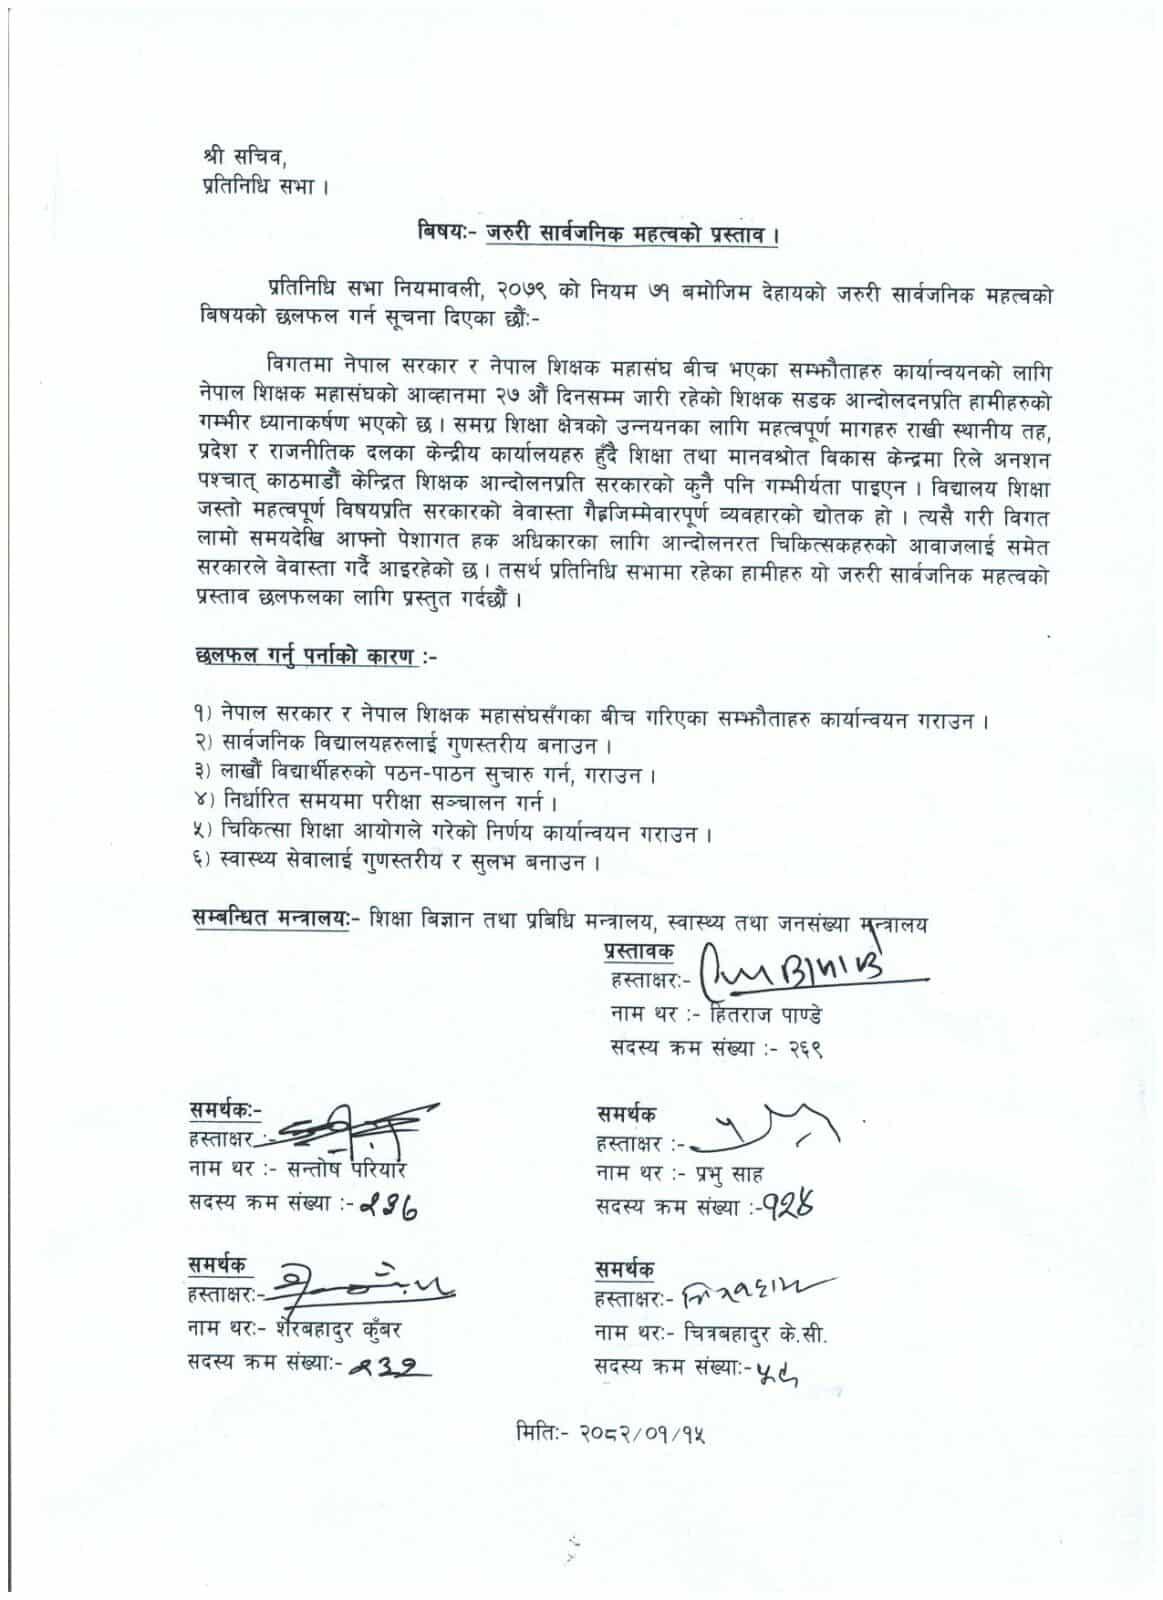 श्री सचिव,
प्रतिनिधि सभा ।
बिषयः- जरुरी सार्वजनिक महत्वको प्रस्ताव ।
प्रतिनिधि सभा नियमावली, २०७९ को नियम ७१ बमोजिम देहायको जरुरी सार्वजनिक महत्वको
बिषयको छलफल गर्न सूचना दिएका छौंः-
विगतमा नेपाल सरकार र नेपाल शिक्षक महासंघ बीच भएका सम्झौताहरु कार्यान्वयनको लागि
नेपाल शिक्षक महासंघको आव्हानमा २७ औं दिनसम्म जारी रहेको शिक्षक सडक आन्दोलदनप्रति हामीहरुको
गम्भीर ध्यानाकर्षण भएको छ । समग्र शिक्षा क्षेत्रको उन्नयनका लागि महत्वपूर्ण मागहरु राखी स्थानीय तह,
प्रदेश र राजनीतिक दलका केन्द्रीय कार्यालयहरु हुँदै शिक्षा तथा मानवश्रोत विकास केन्द्रमा रिले अनशन
पश्चात् काठमाडौं केन्द्रित शिक्षक आन्दोलनप्रति सरकारको कुनै पनि गम्भीर्यता पाइएन । विद्यालय शिक्षा
जस्तो महत्वपूर्ण विषयप्रति सरकारको वेवास्ता गैह्रजिम्मेवारपूर्ण व्यवहारको द्योतक हो । त्यसै गरी विगत
लामो समयदेखि आफ्नो पेशागत हक अधिकारका लागि आन्दोलनरत चिकित्सकहरुको आवाजलाई समेत
सरकारले वेवास्ता गर्दै आइरहेको छ । तसर्थ प्रतिनिधि सभामा रहेका हामीहरु यो जरुरी सार्वजनिक महत्वको
प्रस्ताव छलफलका लागि प्रस्तुत गर्दछौं ।
छलफल गर्नु पर्नाको कारण :-
१) नेपाल सरकार र नेपाल शिक्षक महासंघसँगका बीच गरिएका सम्झौताहरु कार्यान्वयन गराउन ।
२) सार्वजनिक विद्यालयहरुलाई गुणस्तरीय बनाउन ।
३) लाखौं विद्यार्थीहरुको पठन-पाठन सुचारु गर्न, गराउन ।
४) निर्धारित समयमा परीक्षा सञ्चालन गर्न ।
५) चिकित्सा शिक्षा आयोगले गरेको निर्णय कार्यान्वयन गराउन ।
६) स्वास्थ्य सेवालाई गुणस्तरीय र सुलभ बनाउन ।
सम्बन्धित मन्त्रालयः- शिक्षा बिज्ञान तथा प्रबिधि मन्त्रालय, स्वास्थ्य तथा जनसंख्या मन्त्रालय
प्रस्तावक
हस्ताक्षरः-
नाम थर :- हितराज पाण्डे
सदस्य क्रम संख्या :- २६९
समर्थकः-
हस्ताक्षर :-
नाम थर :- सन्तोष परियार
सदस्य क्रम संख्या :- २३६
समर्थक
हस्ताक्षर :-
नाम थर :- प्रभु साह
सदस्य क्रम संख्या :-१२४
समर्थक
हस्ताक्षरः-
नाम थरः- शेरबहादुर कुँबर
सदस्य क्रम संख्याः- २३२
समर्थक
हस्ताक्षरः-
नाम थरः- चित्रबहादुर के.सी.
सदस्य क्रम संख्याः-
मितिः- २०८२/०१/१५